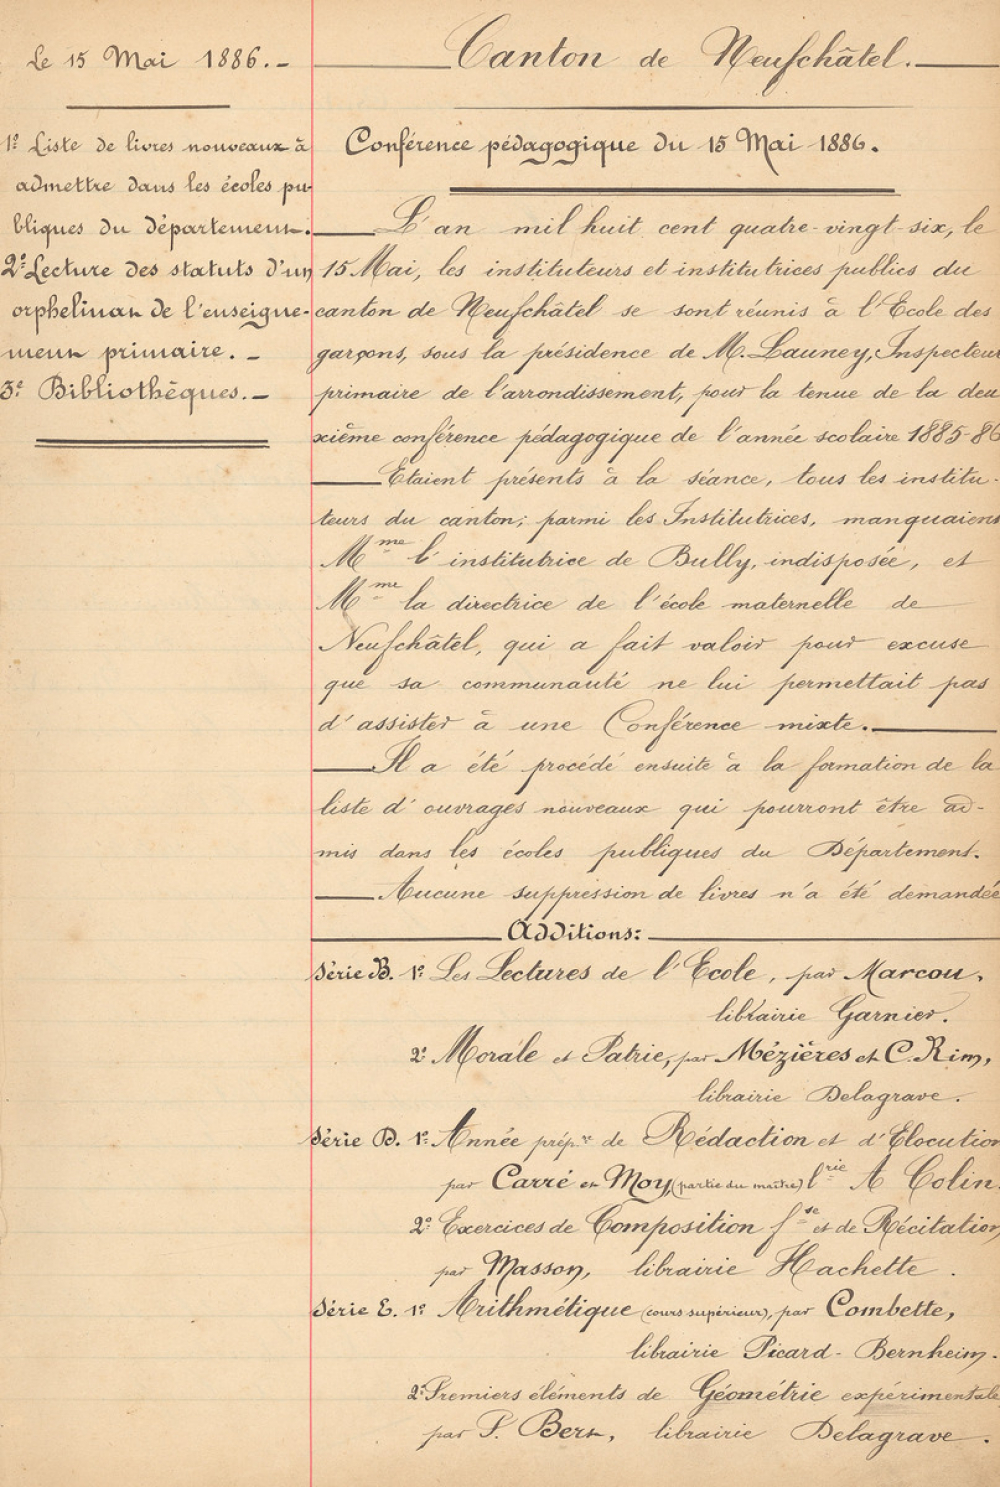 Le 15 Mai 1886. _
1º Liste de livres nouveaux à
admettre dans les écoles pu-
bliques du département.
2º Lecture des statuts d'un
orphelinat de l'enseigne-
ment primaire. _
3º Bibliothèques. _
Canton de Neufchâtel.
Conférence pédagogique du 15 Mai 1886.
L'an mil huit cent quatre-vingt-six, le
15 Mai, les instituteurs et institutrices publics du
canton de Neufchâtel se sont réunis à l'Ecole des
garçons, sous la présidence de M. Launey, Inspecteur
primaire de l'arrondissement, pour la tenue de la deu
xième conférence pédagogique de l'année scolaire 1885-86
Etaient présents à la séance, tous les institu-
teurs du canton; parmi les Institutrices, manquaient
Mme l'institutrice de Bully, indisposée, et
Mme la directrice de l'école maternelle de
Neufchâtel, qui a fait valoir pour excuse
que sa communauté ne lui permettait pas
d'assister à une Conférence mixte.
Il a été procédé ensuite à la formation de la
liste d'ouvrages nouveaux qui pourront être ad-
mis dans les écoles publiques du Département.
Aucune suppression de livres n'a été demandée
Additions:
Série B. 1º Les Lectures de l'Ecole, par Marcou,
librairie Garnier.
2º Morale et Patrie, par Mézières et C. Rim,
librairie Delagrave.
Série D. 1º Année prép.re de Rédaction et d'Elocution
par Carré et Moy, (partie du maître) lrie A Colin.
2º Exercices de Composition fse et de Récitation,
par Masson, librairie Hachette.
Série E. 1º Arithmétique (cours supérieur), par Combette,
librairie Picard-Bernheim.
2º Premiers éléments de Géométrie expérimentale
par P. Bert, librairie Delagrave.